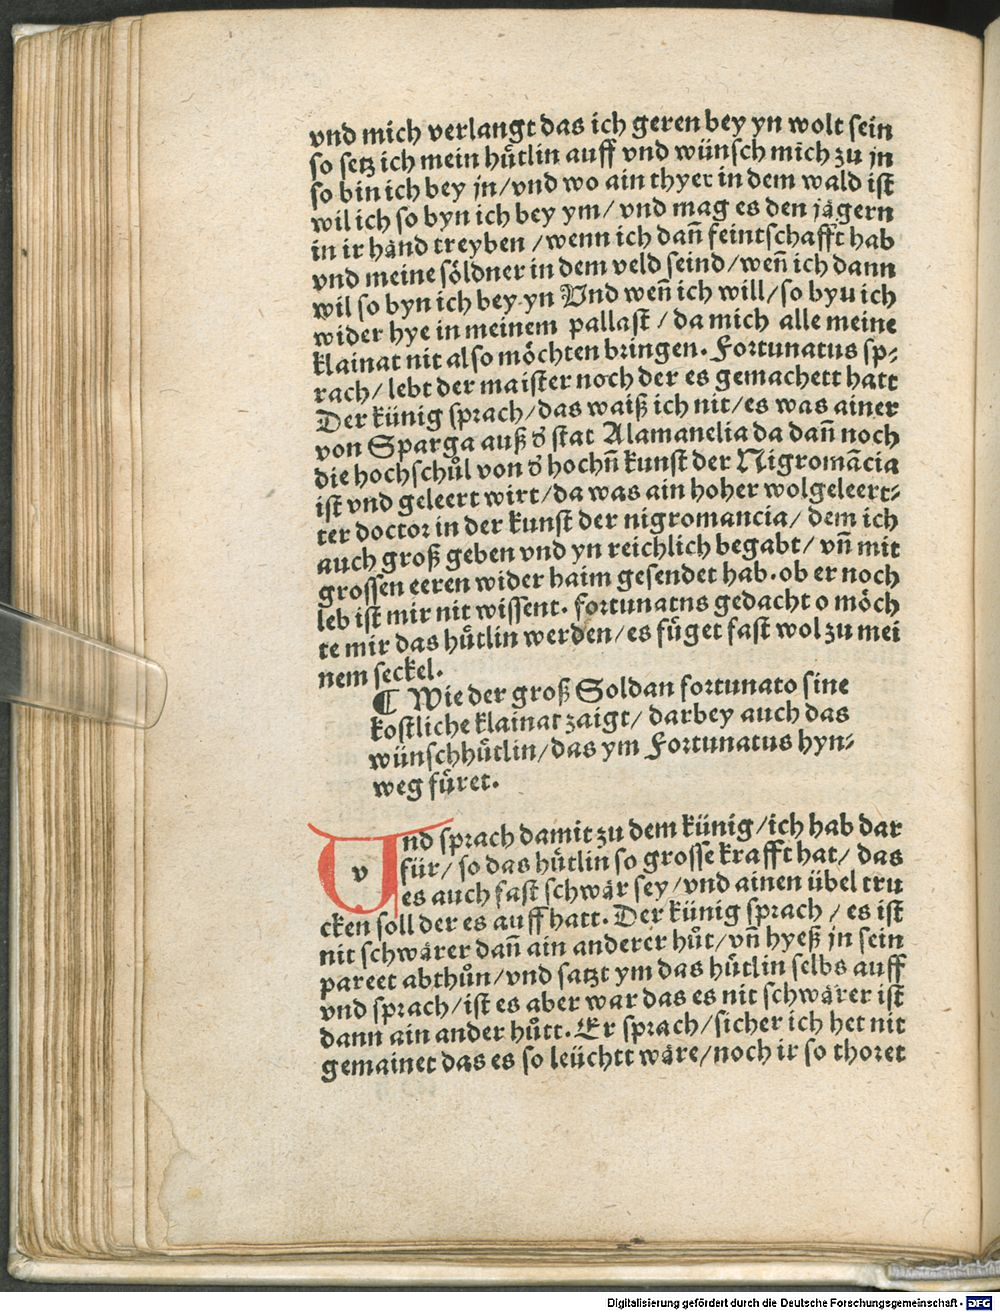 vnd mich verlangt das ich geren bey yn wolt sein
so setz ich mein huͤtlin auff vnd wünsch mich zu jn
so bin ich bey jn/vnd wo ain thyer in dem wald ist
wil ich so byn ich bey ym/ vnd mag es den jaͤgern
in ir haͤnd treyben /wenn ich dañ feintschafft hab
vnd meine soͤldner in dem veld seind/weñ ich dann
wil so byn ich bey yn Vnd weñ ich will/so byu ich
wider hye in meinem pallast / da mich alle meine
klainat nit also moͤchten bꝛingen. Foꝛtunatus sp⸗
rach/ lebt der maister noch der es gemachett hatt
Der künig spꝛach/das waiß ich nit/es was ainer
von Sparga auß d̕ stat Alamanelia da dañ noch
die hochschuͦl von d̕ hochñ kunst der Nigromācia
ist vnd geleert wirt/da was ain hoher wolgeleert⸗
ter doctoꝛ in der kunst der nigromancia/ dem ich
auch groß geben vnd yn reichlich begabt/ vñ mit
grossen eeren wider haim gesendet hab. ob er noch
leb ist mir nit wissent. foꝛtunatns gedacht o moͤch
te mir das huͤtlin werden/es fuͤget fast wol zu mei
nem seckel.
¶ Wie der groß Soldan foꝛtunato sine
kostliche klainat zaigt/ darbey auch das
wünschhuͤtlin/das ym Foꝛtunatus hyn⸗
weg fuͤret.
Vnd spꝛach damit zu dem künig/ich hab dar
v für/ so das huͤtlin so grosse krafft hat/ das
es auch fast schwaͤr sey/vnd ainen übel tru
cken soll der es auff hatt. Der künig spꝛach / es ist
nit schwaͤrer dañ ain anderer huͦt/vñ hyeß jn sein
pareet abthuͦn/vnd satzt ym das huͤtlin selbs auff
vnd spꝛach/ist es aber war das es nit schwaͤrer ist
dann ain ander huͦtt. Er spꝛach/sicher ich het nit
gemainet das es so leüchtt waͤre/noch ir so thoꝛet
Digitalisierung gefördert durch die Deutsche Forschungsgemeinschaft - DFG